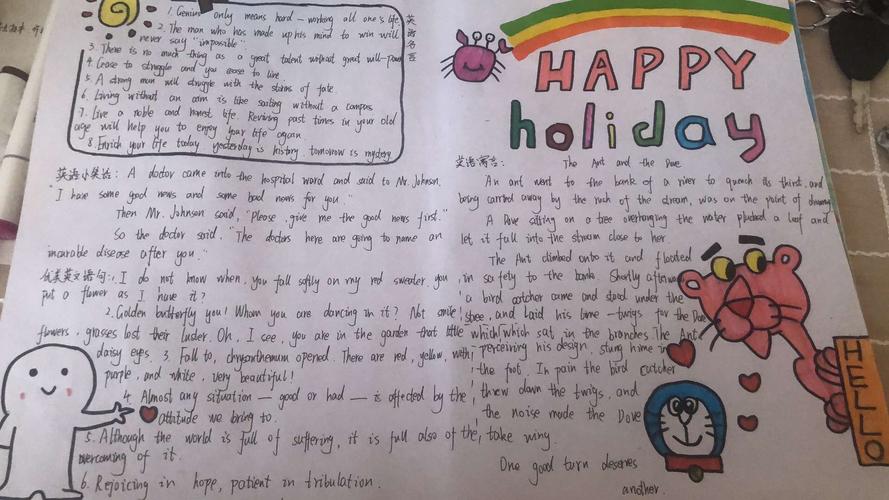 1. Genius only means hard-working all one's life.
2. The man who has made up his mind to win will
never say "impossible".
3. There is no such thing as a great talent without great will-power
4. Cease to struggle and you cease to live
5. A strong man will struggle with the storms of fate.
6. Living without an aim is like sailing without a compas
7. Live a noble and honest life. Reviving past times in your old
age will help you to enjoy your life again.
8. Enrich your life today. yesterday is history. tomorrow is mystery
英语名言
英语小笑话: A doctor came into the hospital ward and said to Mr. Johnson.
"I have some good news and some bad news for you."
Then Mr. Johnson said, "Please, give me the good news first."
So the doctor said. "The doctors here are going to name an
incurable disease after you."
优美英文语句: 1. I do not know when, you fall softly on my red sweater. you
put a flower as I have it?
2. Golden butterfly you! Whom you are dancing in it? Not smile
flowers, grasses lost their luster. Oh, I see, you are in the garden that little
daisy eyes. 3. Fall to, chrysanthemum opened. There are red, yellow, with
purple, and white, very beautiful!
4. Almost any situation — good or bad — is affected by the
attitude we bring to.
5. Although the world is full of suffering, it is full also of the
overcoming of it.
6. Rejoicing in hope, patient in tribulation.
HAPPY
holiday
英语寓言: The Ant and the Dove
An ant went to the bank of a river to quench its thirst, and
being carried away by the rush of the stream, was on the point of drowning
A Dove sitting on a tree overhanging the water plucked a leaf and
let it fall into the stream close to her.
The Ant climbed onto it and floated
in safety to the bank. Shortly afterwards
a bird catcher came and stood under the
tree, and laid his lime-twigs for the Dove
which which sat in the branches. The Ant
perceiving his design, stung him in
the foot. In pain the bird catcher
threw down the twigs, and
the noise made the Dove
take wing.
One good turn deserves
another.
HELLO